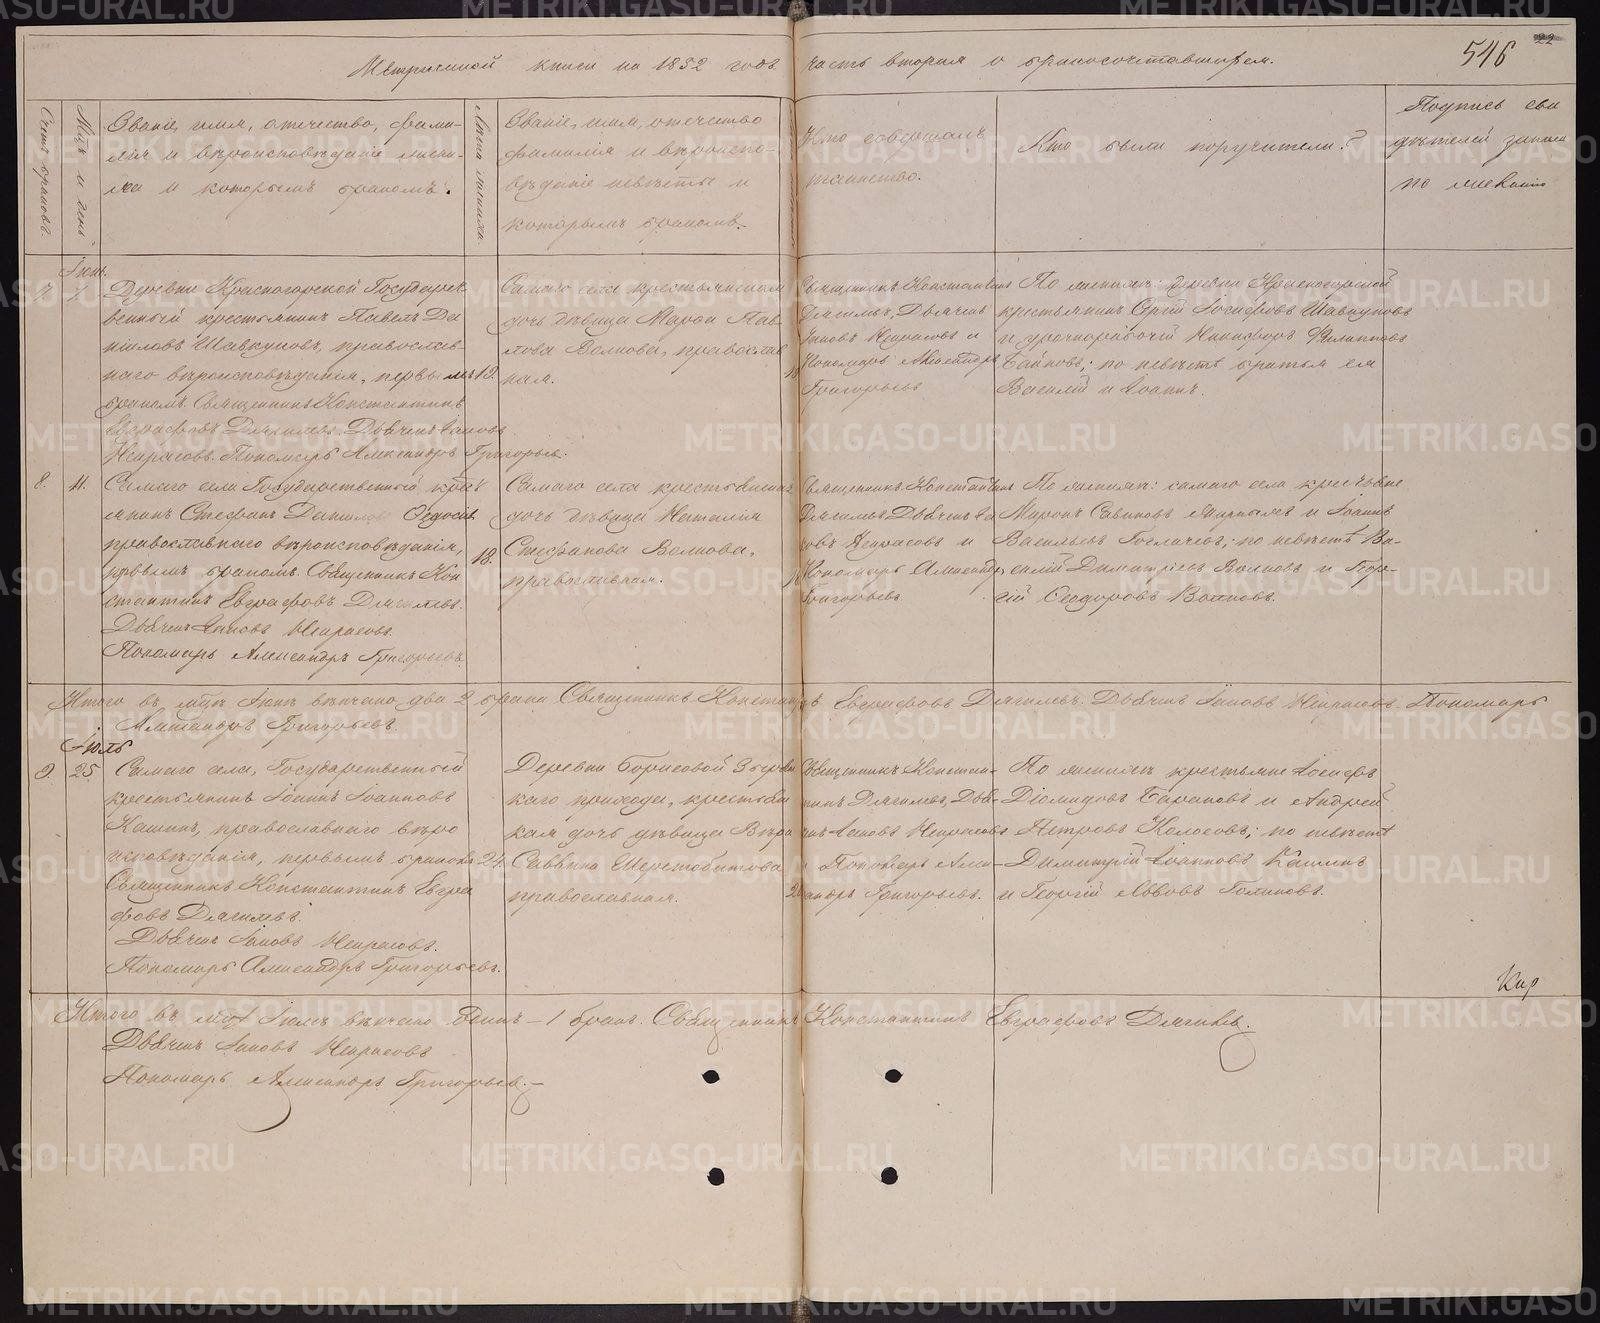 546
Метрической книги на 1882 годъ часть вторая о бракосочетавшихся.
Счетъ браковъ.
М-цъ и день
Званіе, имя, отчество, фами-
лія и вѣроисповѣданіе жени-
ха и которымъ бракомъ.
Лѣта жениха.
Званіе, имя, отечество
фамилія и вѣроиспо-
вѣданіе невѣсты и
которымъ бракомъ.
Кто совершалъ
таинство.
Кто были поручители?
Подпись сви
дѣтелей записи
по желанію
Іюнь.
7. 7.
Деревни Красногорской Государст
венный крестьянинъ Павелъ Да
ніиловъ Шавкуновъ, православ-
наго вѣроисповѣданія, первымъ
бракомъ. Священникъ Константинъ
Евграфовъ Дягилевъ. Дьячекъ Іаковъ
Некрасовъ. Пономарь Александръ Григорьевъ.
19.
Самаго села крестьянская
дочь дѣвица Марѳа Пав
лова Волкова, православ
ная.
Священникъ Константинъ
Дягилевъ, Дьячекъ
Іаковъ Некрасовъ и
Пономарь Александръ
Григорьевъ
По женихѣ: деревни Красногорской
крестьянинъ Сергій Іосифовъ Шавкуновъ
и урочнорабочій Никифоръ Филипповъ
по невѣстѣ братья ея
Василій и Іоаннъ.
8. 11.
Самаго села Государственный крест
янинъ Стефанъ Даниловъ
православнаго вѣроисповѣданія,
первымъ бракомъ. Священникъ Кон
стантинъ Евграфовъ Дягилевъ.
Дьячекъ Іаковъ Некрасовъ.
Пономарь Александръ Григорьевъ.
18.
Самаго села крестьянская
дочь дѣвица Наталія
Стефанова Волкова,
православная.
Священникъ Константинъ
Дягилевъ Дьячекъ Іа
ковъ Некрасовъ и
Пономарь Александръ
Григорьевъ
По женихѣ: самаго села крестьяне
Миронъ Савиновъ и Іоаннъ
Васильевъ по невѣстѣ Ва-
силій Димитріевъ Волковъ и Геор-
гій Ѳеодоровъ Волковъ.
Итого въ м-цѣ Іюнѣ вѣнчано два 2 брака Священникъ Константинъ Евграфовъ Дягилевъ. Дьячекъ Іаковъ Некрасовъ Пономарь
Александръ Григорьевъ.
Іюль
9. 25.
Самаго села, Государственный
крестьянинъ Іоаннъ Іоанновъ
Кашинъ, православнаго вѣро
исповѣданія, первымъ бракомъ
Священникъ Константинъ Евгра
фовъ Дягилевъ.
Дьячекъ Іаковъ Некрасовъ.
Пономарь Александръ Григорьевъ.
24.
Деревни Борисовой
каго прихода, крестьян
кая дочь дѣвица Вѣра
Саввина Шерстобитова
православная.
Священникъ Констан-
тинъ Дягилевъ, Дья-
чекъ Іаковъ Некрасовъ
и Пономарь Алек-
сандръ Григорьевъ.
По женихѣ крестьяне Іосифъ
Діомидовъ Барановъ и Андрей
Петровъ Колосовъ; по невѣстѣ
Димитрій Іоанновъ Кашинъ
и Георгій Львовъ Голиковъ.
Итого въ м-цѣ Іюлѣ вѣнчано Одинъ – 1 бракъ. Священникъ Константинъ Евграфовъ Дягилевъ.
Дьячекъ Іаковъ Некрасовъ
Пономарь Александръ Григорьевъ.
METRIKI.GASO-URAL.RU